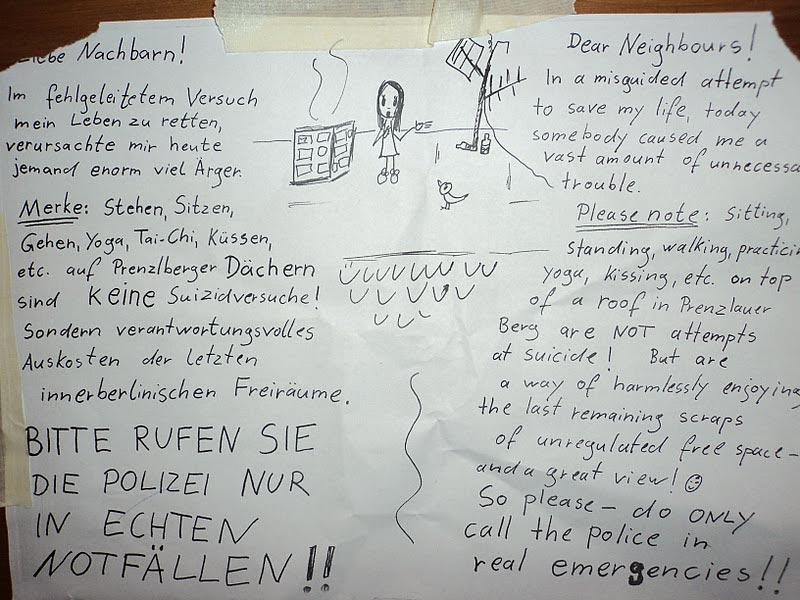 Liebe Nachbarn!
Im fehlgeleitetem Versuch
mein Leben zu retten,
verursachte mir heute
jemand enorm viel Ärger.
Merke: Stehen, Sitzen,
Gehen, Yoga, Tai-Chi, Küssen,
etc. auf Prenzlberger Dächern
sind keine Suizidversuche!
Sondern verantwortungsvolles
Auskosten der letzten
innerberlinischen Freiräume.
BITTE RUFEN SIE
DIE POLIZEI NUR
IN ECHTEN
NOTFÄLLEN!!
Dear Neighbours!
In a misguided attempt
to save my life, today
somebody caused me a
vast amount of unnecessa
trouble.
Please note: Sitting,
standing, walking, practicin
yoga, kissing, etc. on top
of a roof in Prenzlauer
Berg are NOT attempts
at suicide! But are
a way of harmlessly enjoying
the last remaining scraps
of unregulated free space –
and a great view! ☺
So please – do ONLY
call the police in
real emergencies!!